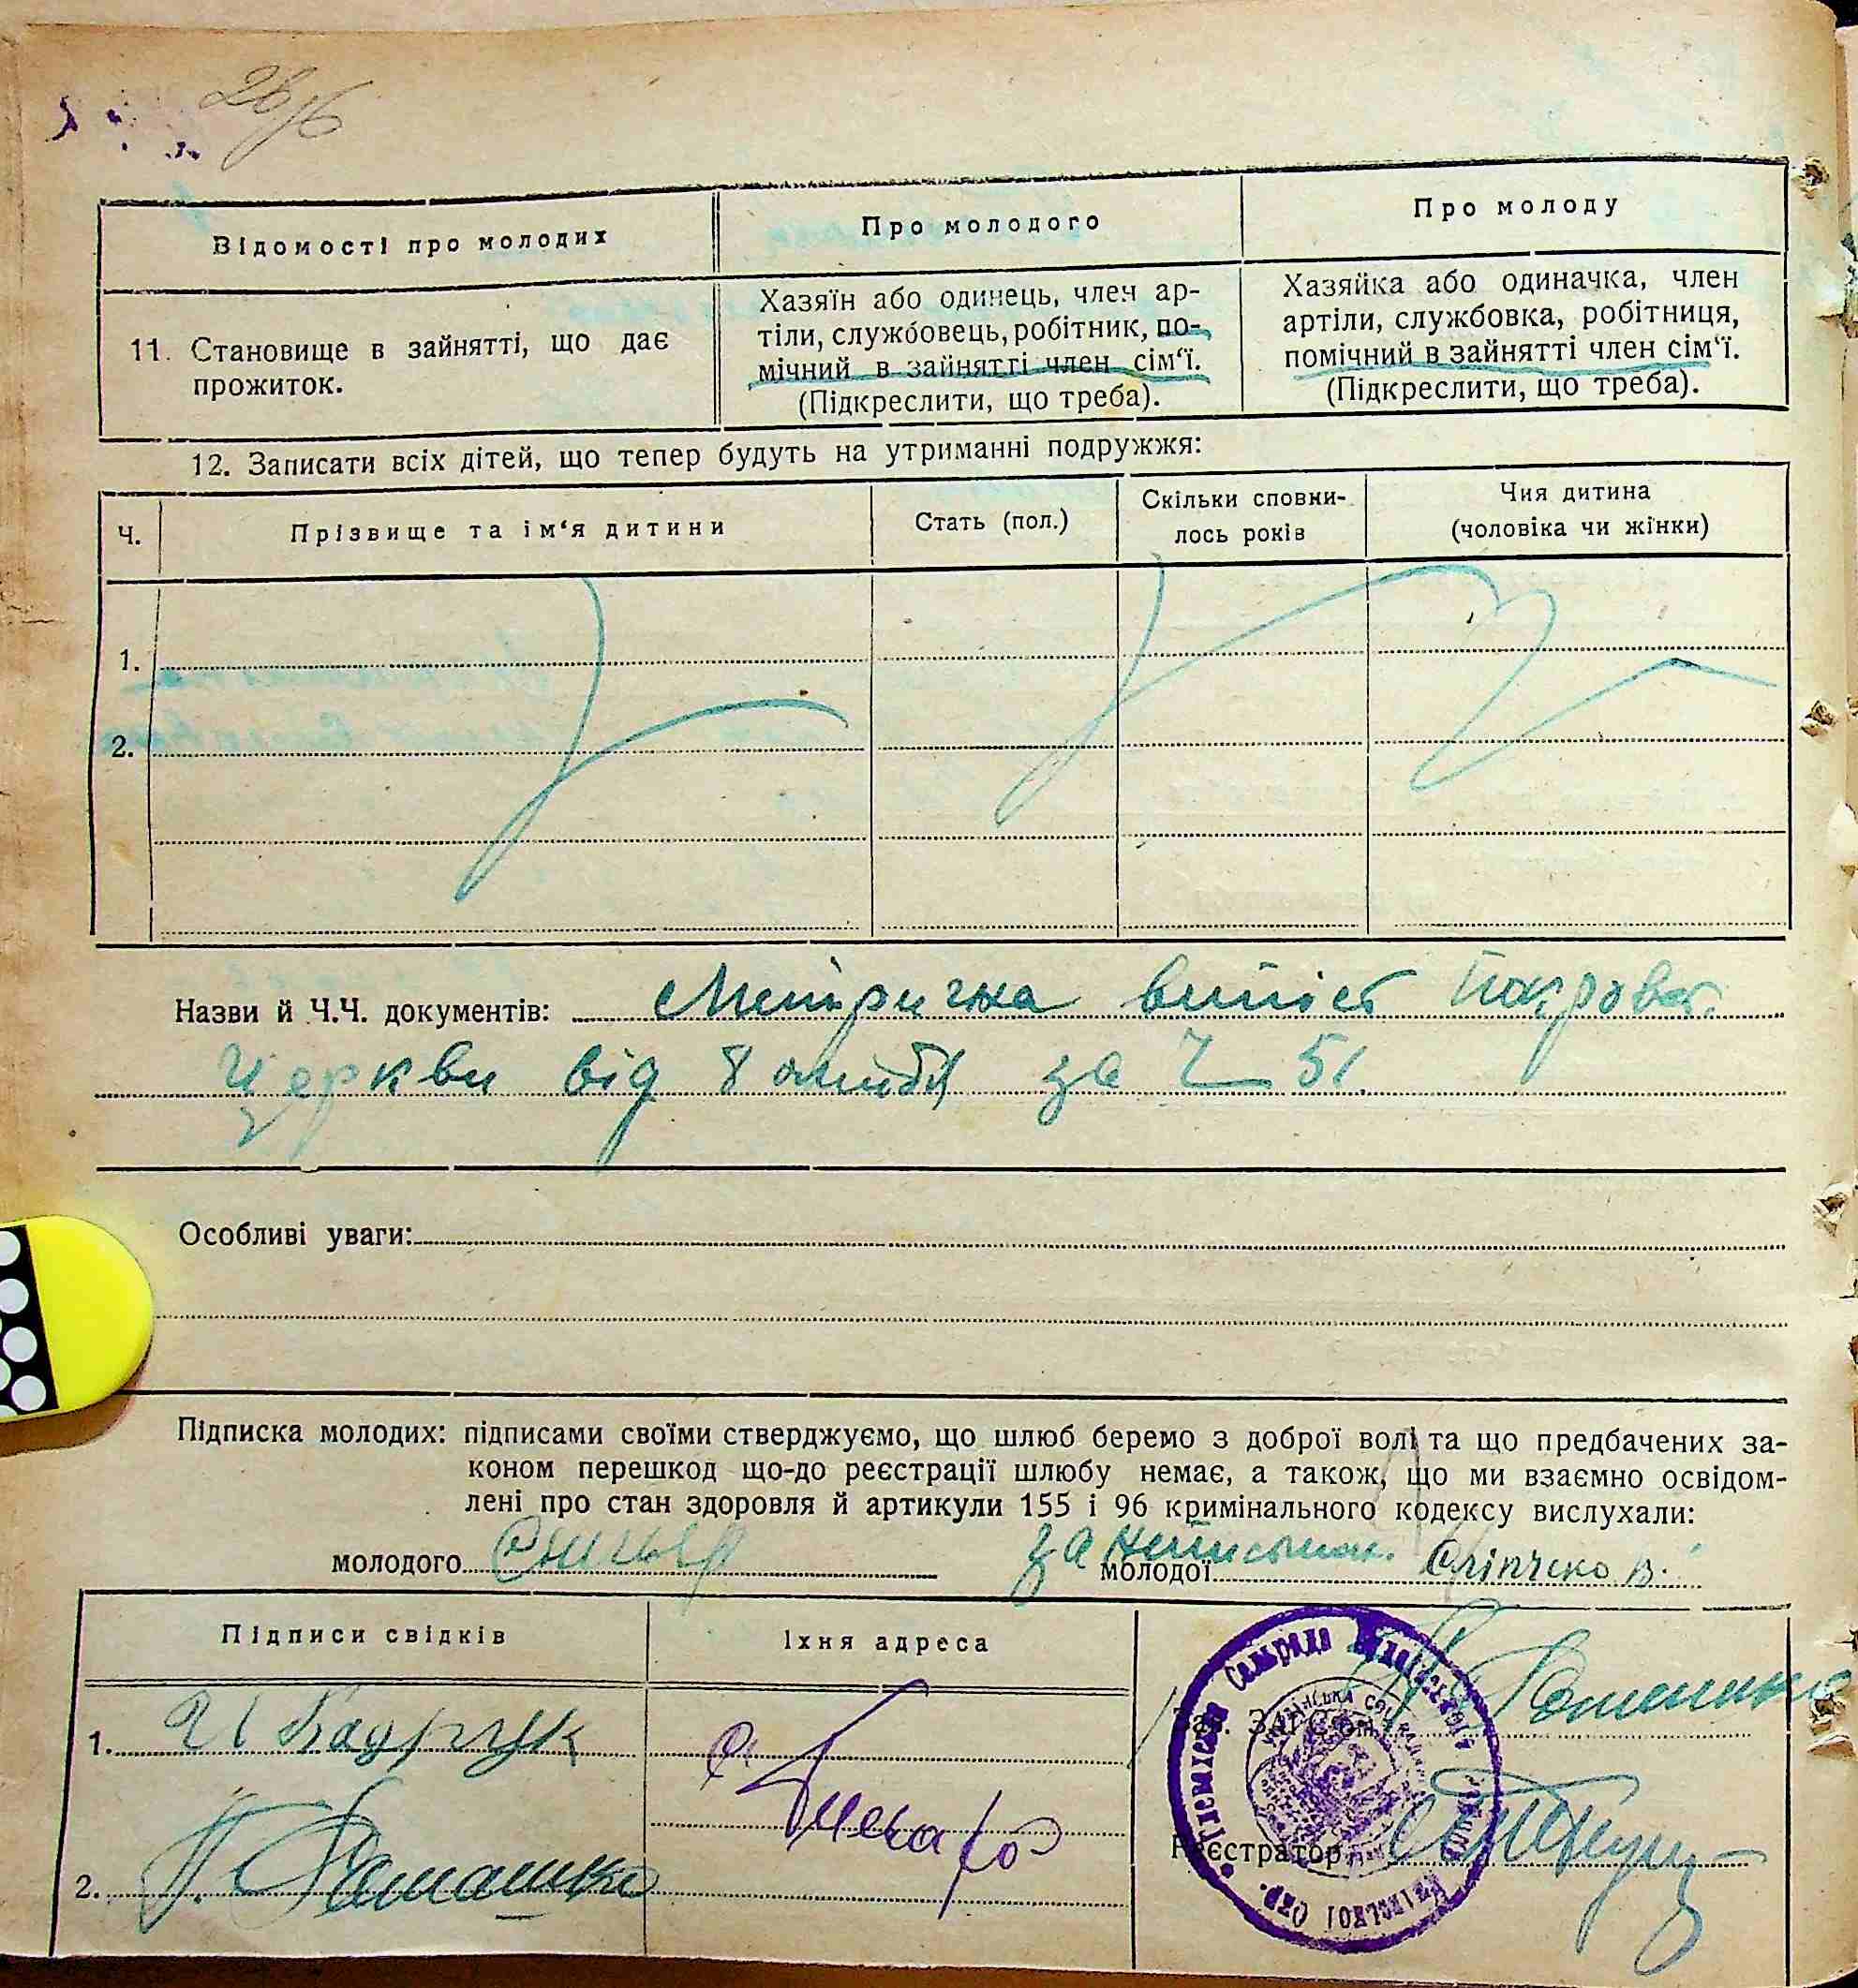 28/6
Відомості про молодих
Про молодого
Про молоду
11. Становище в зайнятті, що дає
прожиток.
Хазяїн або одинець, член ар-
тіли, службовець, робітник, по-
мічний в зайнятті член сім‘ї.
(Підкреслити, що треба).
Хазяйка або одиначка, член
артіли, службовка, робітниця,
помічний в зайнятті член сім‘ї.
(Підкреслити, що треба).
12. Записати всіх дітей, що тепер будуть на утриманні подружжя:
Ч.
Прізвище та ім‘я дитини
Стать (пол.)
Скільки сповни-
лось років
Чия дитина
(чоловіка чи жінки)
1.
2.
Назви й Ч.Ч. документів: Метрична випись Покровс.
Церкви від 8 за Ч 51.
Особливі уваги:
Підписка молодих: підписами своїми стверджуємо, що шлюб беремо з доброї волі та що предбачених за-
коном перешкод що-до реєстрації шлюбу немає, а також, що ми взаємно освідом-
лені про стан здоровля й артикули 155 і 96 кримінального кодексу вислухали:
молодого
за неписьмен. молодої Сліпченко В.
Підписи свідків
Їхня адреса
1.
2. П. Ромашко
Зав. ЗАГСом
Реєстратор
Сельрада
Київської Окр.
УКРАЇНСЬКА СОЦ. РАДЯН.